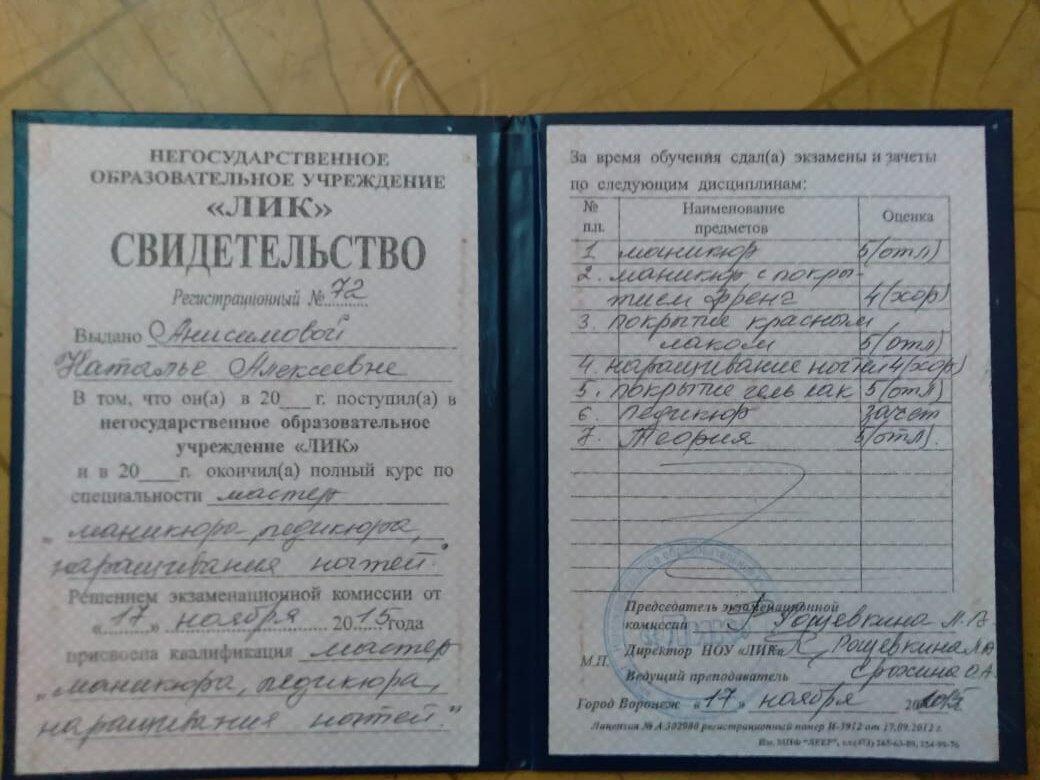 НЕГОСУДАРСТВЕННОЕ
ОБРАЗОВАТЕЛЬНОЕ УЧРЕЖДЕНИЕ
«ЛИК»
СВИДЕТЕЛЬСТВО
Регистрационный № 72
Выдано Анисимовой
Наталье Алексеевне
В том, что он(а) в 20___г. поступил(а) в
негосударственное образовательное
учреждение «ЛИК»
и в 20___г. окончил(а) полный курс по
специальности мастер
„маникюра, педикюра,
наращивания ногтей."
Решением экзаменационной комиссии от
«17» ноября 2015года
присвоена квалификация мастер
„маникюра, педикюра,
наращивания ногтей."
За время обучения сдал(а) экзамены и зачеты
по следующим дисциплинам:
№ п.п. Наименование предметов Оценка
1 маникюр 5(отл)
2. маникюр с покры-
тием френч 4(хор)
3. покрытие красным
лаком 5(отл)
4. наращивание ногтей 4(хор)
5. покрытие гель лак 5(отл)
6. педикюр зачет
7. Теория 5(отл).
Председатель экзаменационной
комиссии Рощевкина Л.А.
Директор НОУ «ЛИК» Рощевкина Л.А
М.П.
Ведущий преподаватель Ерохина О.А.
Город Воронеж «17» ноября 2015
Лицензия № А 302980 регистрационный номер И-3912 от 17.09.2012 г.